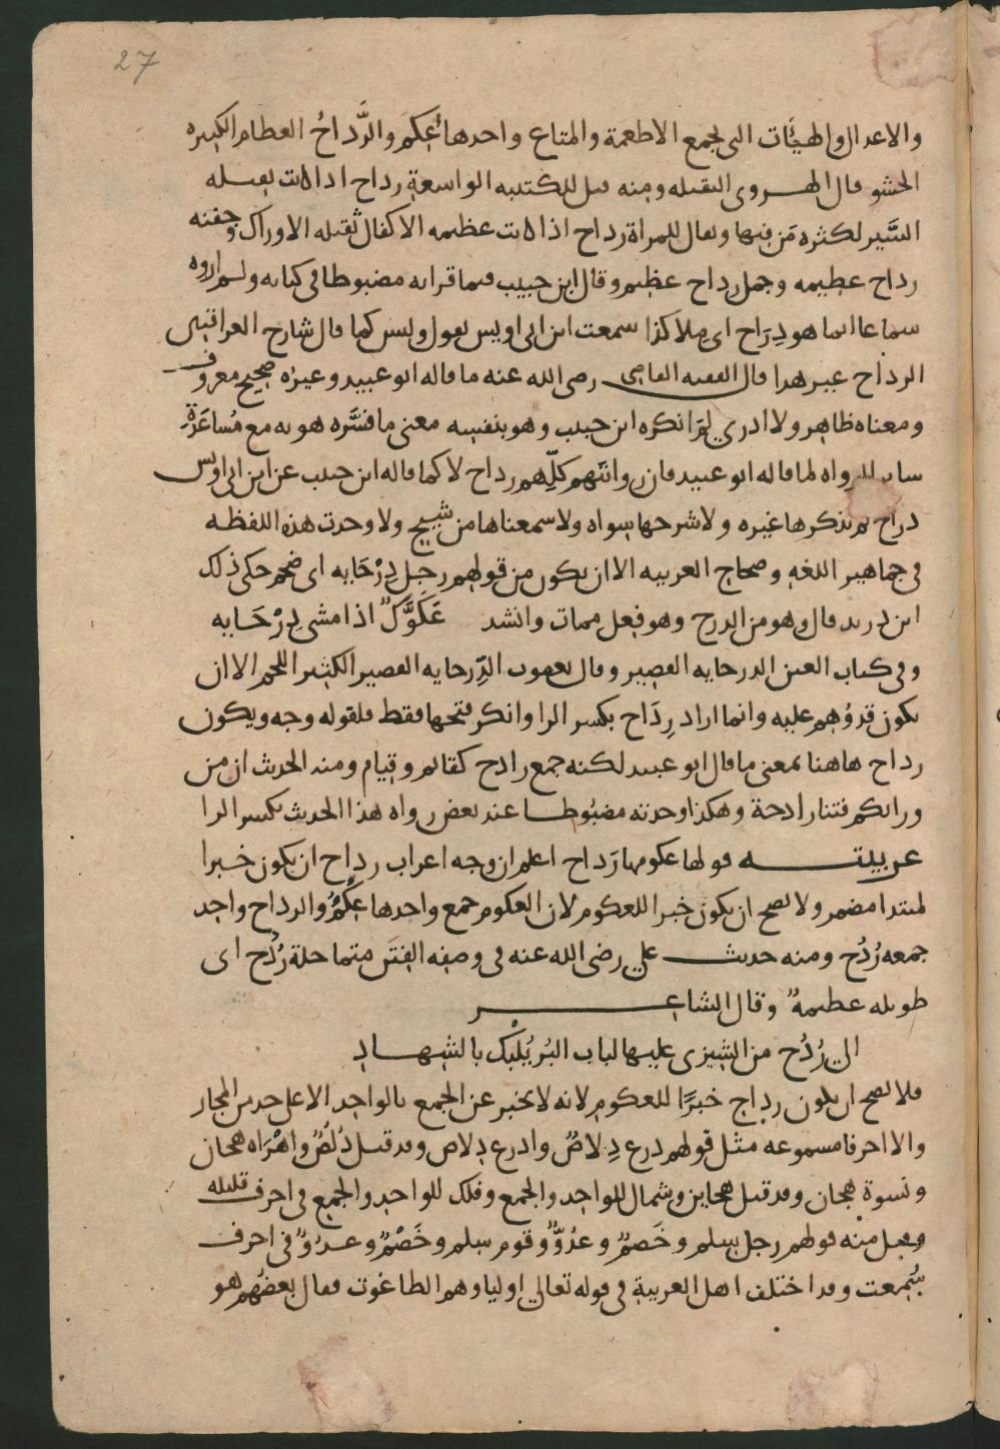 27
والاعدال والهيئات التى تجمع الاطعمة والمتاع واحدها عكم والرَّداحُ العظام الكبيره
الحشو قال الهروى الثقيله ومنه قيل للكتيبه الواسعة رداح اذا كانت ثقيله
السَّير لكثره مَن فيها ويقال للمراة رداح اذا كانت عظيمه الاكفال ثقيله الاوراك وجفنه
رداح عظيمه وجمل رداح عظيم وقال ابن حبيب فيما قراته مضبوطا في كتابه ولم اروه
سماعا انما هو دِرَاح اى مِلا كذا سمعت ابن ابى اويس يقول وليس كما قال شارح العراقيين
الرداح غير هذا قال الفقيه القاضى رضى الله عنه ما قاله ابو عبيد وغيره صحيح معروف
ومعناه ظاهر ولا ادري لِمَ انكره ابن حبيب وهو بنفسه معنى ما فسَّره هو به مع مُساعَدَةِ
ساير الرواه لما قاله ابو عبيد فان روايتهم كلّهم رداح لا كما قاله ابن حبيب عن ابن ابى اويس
دراح لم يذكرها غيره ولا شرحها سواه ولا سمعناها من شيخ ولا وجدت هذه اللفظه
في جماهير اللغه وصحاح العربيه الا ان يكون من قولهم رجل دِرْحَايه اى ضخم حكى ذلك
ابن دريد قال وهو من الدرح وهو فعل ممات وانشد عَكَوَّكٌ اذا مشى دِرْحَايه
وفي كتاب العين الدرحايه القصير وقال يعقوب الدِّرحايه القصير الكثير اللحم الا ان
يكون قد وُهِم عليه وانما اراد رِدَاح بكسر الرا وانكر فتحها فقط فلقوله وجه ويكون
رداح هاهنا بمعنى ما قال ابو عبيد لكنه جمع رادح كقائم وقيام ومنه الحديث ان من
ورائكم فتنا رادحة وهكذا وجدته مضبُوطا عند بعض رواه هذا الحديث بكسر الرا
عربيته قولها عكومها رَداح اعلم ان وجه اعراب رداح ان يكون خبرا
لمبتدا مضمر ولا يصح ان يكون خبرا للعكوم لان العكوم جمع واحدها عِكْمٌ والرداح واحد
جمعه رُدُح ومنه حديث علي رضى الله عنه في وصفه الفتَن متماحلة رُدُح اى
طويله عظيمةٌ وقال الشاعر
الى رُدُح من الشيزى عليها لباب البُر يُلبَك بالشهاد
فلا يصح ان يكون رداح خبرًا للعكوم لانه لا يخبر عن الجمع بالواحد الا على حد من المجاز
والا احرفا مسموعه مثل قولهم درع دِلاصٌ وادرع دِلاص وقد قيل دُلُصٌ وامْرَاه هجان
ونسوة هجان وقد قيل هجاين وشمال للواحد والجمع وفلك للواحد والجمع في احرف قليله
وقيل منه قولهم رجل سِلم وخَصمٌ وعدُوٌّ وقوم سِلم وخَصْمٌ وعدُوٌّ في احرف
سُمعت وقد اختلف اهل العربية في قوله تعالى اولياوهم الطاغوت فقال بعضُهم هو